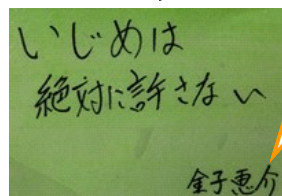 いじめは
絶対に許さない
金子恵介